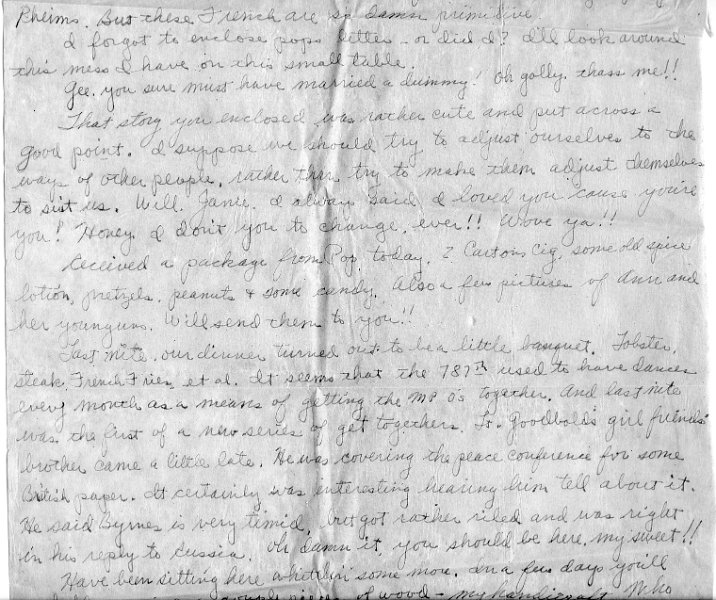 Rheims. But these French are so damn primitive.
I forgot to enclose pops letter - or did I? I'll look around
this mess I have on this small table.
Gee, you sure must have married a dummy! Oh golly. thass me!!
That story you enclosed was rather cute and put across a
good point. I suppose we should try to adjust ourselves to the
ways of other people, rather than try to make them adjust themselves
to suit us. Well, Janie, I always said I loved you 'cause you're
you! Honey I don't you to change, ever!! Wove ya!!
Received a package from Pop today. 2 Cartons Cig, some old spice
lotion, pretzels, peanuts & some candy. Also a few pictures of Ann and
her younguns. Will send them to you!!
Last nite our dinner turned out to be a little banquet. Lobster,
steak, French Fries, et al. It seems that the 787th used to have dances
every month as a means of getting the MP O's together. And last nite
was the first of a new series of get togethers. Lt. Goodbold's girl friends'
brother came a little late. He was covering the peace conference for some
British paper. It certainly was interesting hearing him tell about it.
He said Byrnes is very timid, but got rather riled and was right
in his reply to Russia. Oh damn it, you should be here, my sweet!!
Have been sitting here whittlin' some more. In a few days you'll
of wood - my handicraft. Who